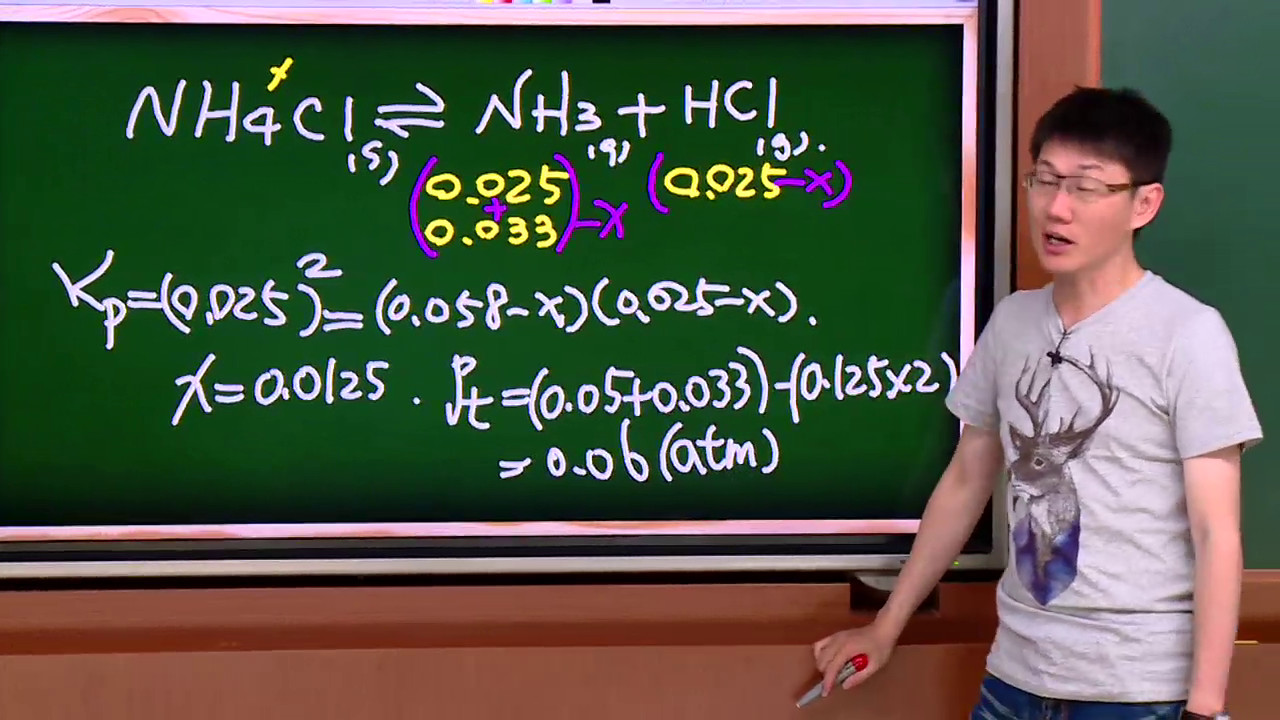 NH4Cl(s) ⇌ NH3(g) + HCl(g).
(0.025 + 0.033) - x (0.025 - x)
Kp = (0.025)² = (0.058 - x)(0.025 - x).
x = 0.0125 . Pt = (0.05 + 0.033) - (0.125 x 2)
= 0.06 (atm)